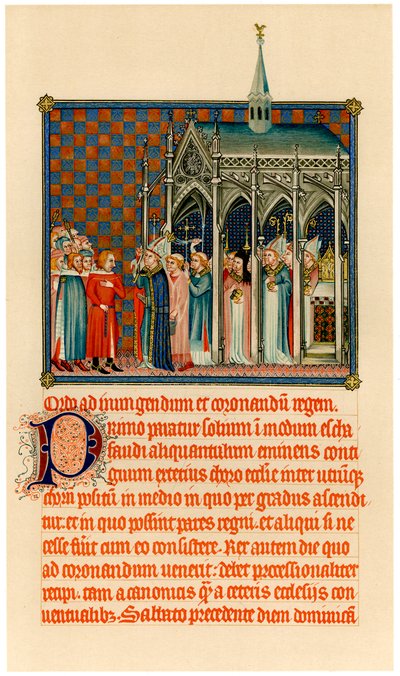 Ordo ad inungendum et coronandū regem.
Primo paratur solium ī modum escha
faudi aliquantulum eminens conti
gnum exterius choro ecclīe inter utrūqꝫ
chorū positū in medio in quo per gradus ascendi
tur. et in quo possint pares regni. et aliqui si ne
cesse fūit cum eo consistere. Rex autem die quo
ad coronandum venerit: debet processionaliter
recipi. tam a canonicis qꝫ a ceteris ecclesijs con
uentualibꝫ. Sabbato precedente diem dominicā